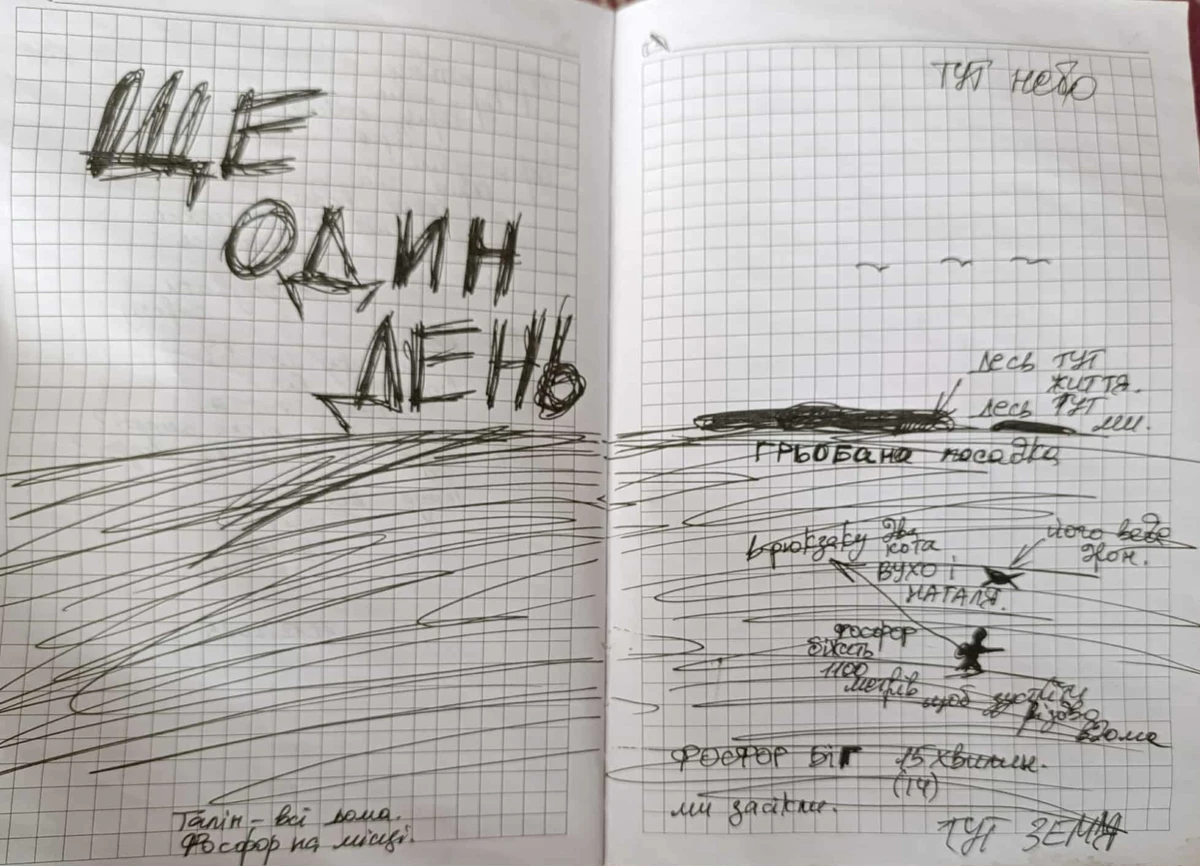 ЩЕ
ОДИН
ДЕНЬ
Талін – всі дома.
Фосфор на місці.
ТУТ небо
десь ТУТ
життя.
десь ТУТ
ми.
ГРЬОБАНА посадка
в рюкзаку два
кота
ВУХО і
НАТАЛЯ.
його веде
Жон.
Фосфор
біжить
1100
метрів щоб зустріть
різдво
вдома
ФОСФОР БІГ 15 хвилин.
(14)
ми засікли.
ТУТ ЗЕМЛЯ